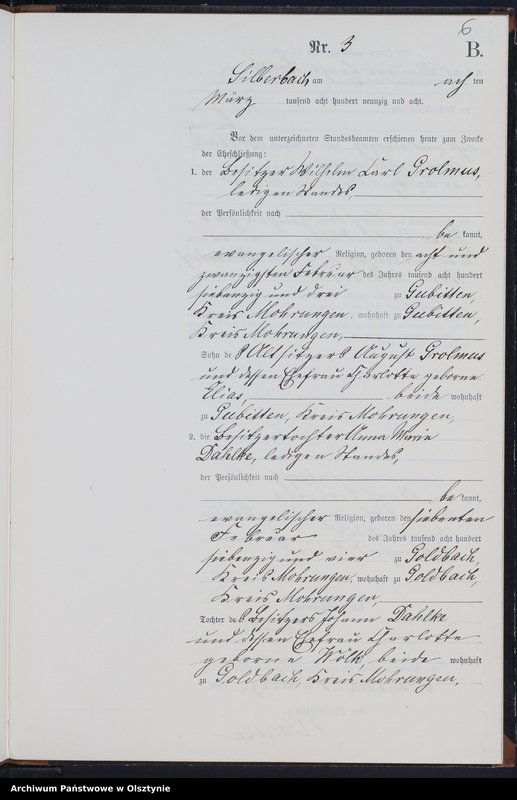 6
Nr. 3
B.
Silberbach am acht ten
März tausend acht hundert neunzig und acht.
Vor dem unterzeichneten Standesbeamten erschienen heute zum Zwecke
der Eheschließung:
1. der Besitzer Wilhelm Carl Grolmus,
ledigen Standes,
der Persönlichkeit nach
be kannt,
evangelischer Religion, geboren den acht und
zwanzigsten Februar des Jahres tausend acht hundert
siebenzig und drei zu Gubitten,
Kreis Mohrungen, wohnhaft zu Gubitten,
Kreis Mohrungen,
Sohn des Altsitzers August Grolmus
und dessen Ehefrau Charlotte geborne
Elias, beide wohnhaft
zu Gubitten, Kreis Mohrungen,
2. die Besitzertochter Anna Marie
Dahlke, ledigen Standes,
der Persönlichkeit nach
be kannt,
evangelischer Religion, geboren den siebenten
Februar des Jahres tausend acht hundert
siebenzig und vier zu Goldbach,
Kreis Mohrungen, wohnhaft zu Goldbach,
Kreis Mohrungen,
Tochter des Besitzers Johann Dahlke
und dessen Ehefrau Charlotte
geborne Wölk, beide wohnhaft
zu Goldbach, Kreis Mohrungen,
Archiwum Państwowe w Olsztynie